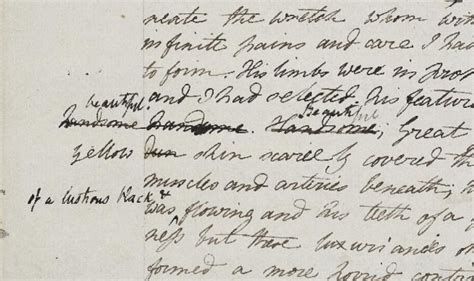 neate the wretch whom with
infinite pains and care I ha
to form. His limbs were in prop
and I had selected his featur
beautiful
handsome handsome. Handsome; Great
Beautiful
yellow dun skin scarcely covered the
muscles and arteries beneath; h
of a lustrous black &
was flowing and his teeth of a p
ness but these luxuriances on
formed a more horrid contra